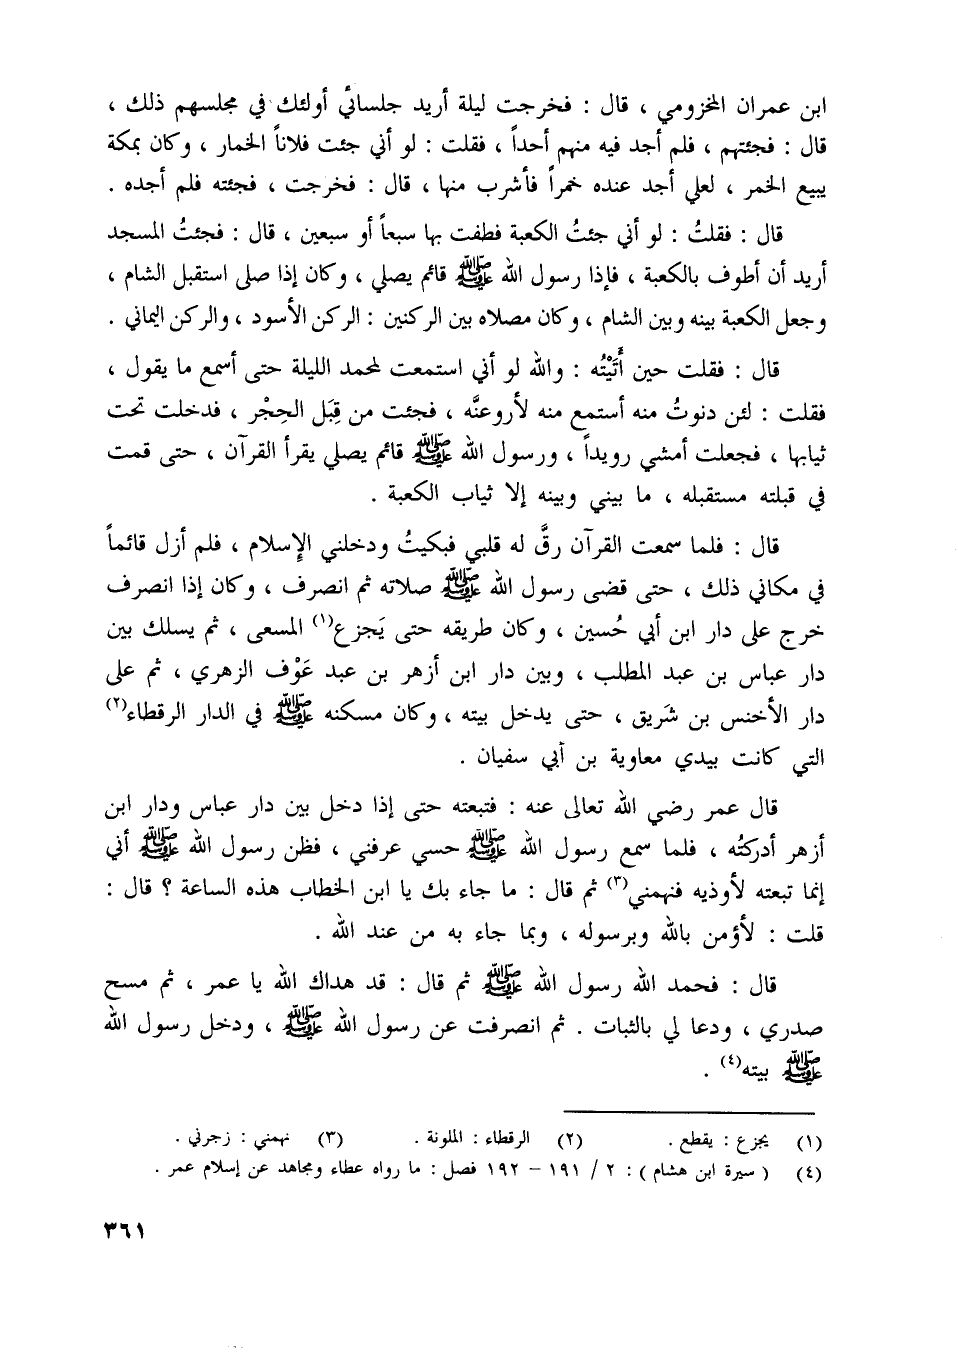 ابن عمران المخزومي ، قال : فخرجت ليلة أريد جلسائي أولئك في مجلسهم ذلك ،
قال : فجئتهم ، فلم أجد فيه منهم أحداً ، فقلت : لو أني جئت فلاناً الخمار ، وكان بمكة
يبيع الخمر ، لعلي أجد عنده خمراً فأشرب منها ، قال : فخرجت ، فجئته فلم أجده .
قال : فقلتُ : لو أني جئتُ الكعبة فطفت بها سبعاً أو سبعين ، قال : فجئتُ المسجد
أريد أن أطوف بالكعبة ، فإذا رسول الله ﷺ قائم يصلي ، وكان إذا صلى استقبل الشام ،
وجعل الكعبة بينه وبين الشام ، وكان مصلاه بين الركنين : الركن الأسود ، والركن اليماني .
قال : فقلت حين أَتَيْتُه : والله لو أني استمعت لمحمد الليلة حتى أسمع ما يقول ،
فقلت : لئن دنوتُ منه أستمع منه لأروعنَّه ، فجئت من قِبَل الحِجْر ، فدخلت تحت
ثيابها ، فجعلت أمشي رويداً ، ورسول الله ﷺ قائم يصلي يقرأ القرآن ، حتى قمت
في قبلته مستقبله ، ما بيني وبينه إلا ثياب الكعبة .
قال : فلما سمعت القرآن رقَّ له قلبي فبكيتُ ودخلني الإسلام ، فلم أزل قائماً
في مكاني ذلك ، حتى قضى رسول الله ﷺ صلاته ثم انصرف ، وكان إذا انصرف
خرج على دار ابن أبي حُسين ، وكان طريقه حتى يَجزع(١) المسعى ، ثم يسلك بين
دار عباس بن عبد المطلب ، وبين دار ابن أزهر بن عبد عَوْف الزهري ، ثم على
دار الأخنس بن شَريق ، حتى يدخل بيته ، وكان مسكنه ﷺ في الدار الرقطاء(٢)
التي كانت بيدي معاوية بن أبي سفيان .
قال عمر رضي الله تعالى عنه : فتبعته حتى إذا دخل بين دار عباس ودار ابن
أزهر أدركتُه ، فلما سمع رسول الله ﷺ حسي عرفني ، فظن رسول الله ﷺ أني
إنما تبعته لأوذيه فنهمني(٣) ثم قال : ما جاء بك يا ابن الخطاب هذه الساعة ؟ قال :
قلت : لأؤمن بالله وبرسوله ، وبما جاء به من عند الله .
قال : فحمد الله رسول الله ﷺ ثم قال : قد هداك الله يا عمر ، ثم مسح
صدري ، ودعا لي بالثبات . ثم انصرفت عن رسول الله ﷺ ، ودخل رسول الله
ﷺ بيته(٤) .
(١) يجزع : يقطع . (٢) الرقطاء : الملونة . (٣) نهمني : زجرني .
(٤) ( سيرة ابن هشام ) : ٢ / ١٩١ – ١٩٢ فصل : ما رواه عطاء ومجاهد عن إسلام عمر .
٣٦١